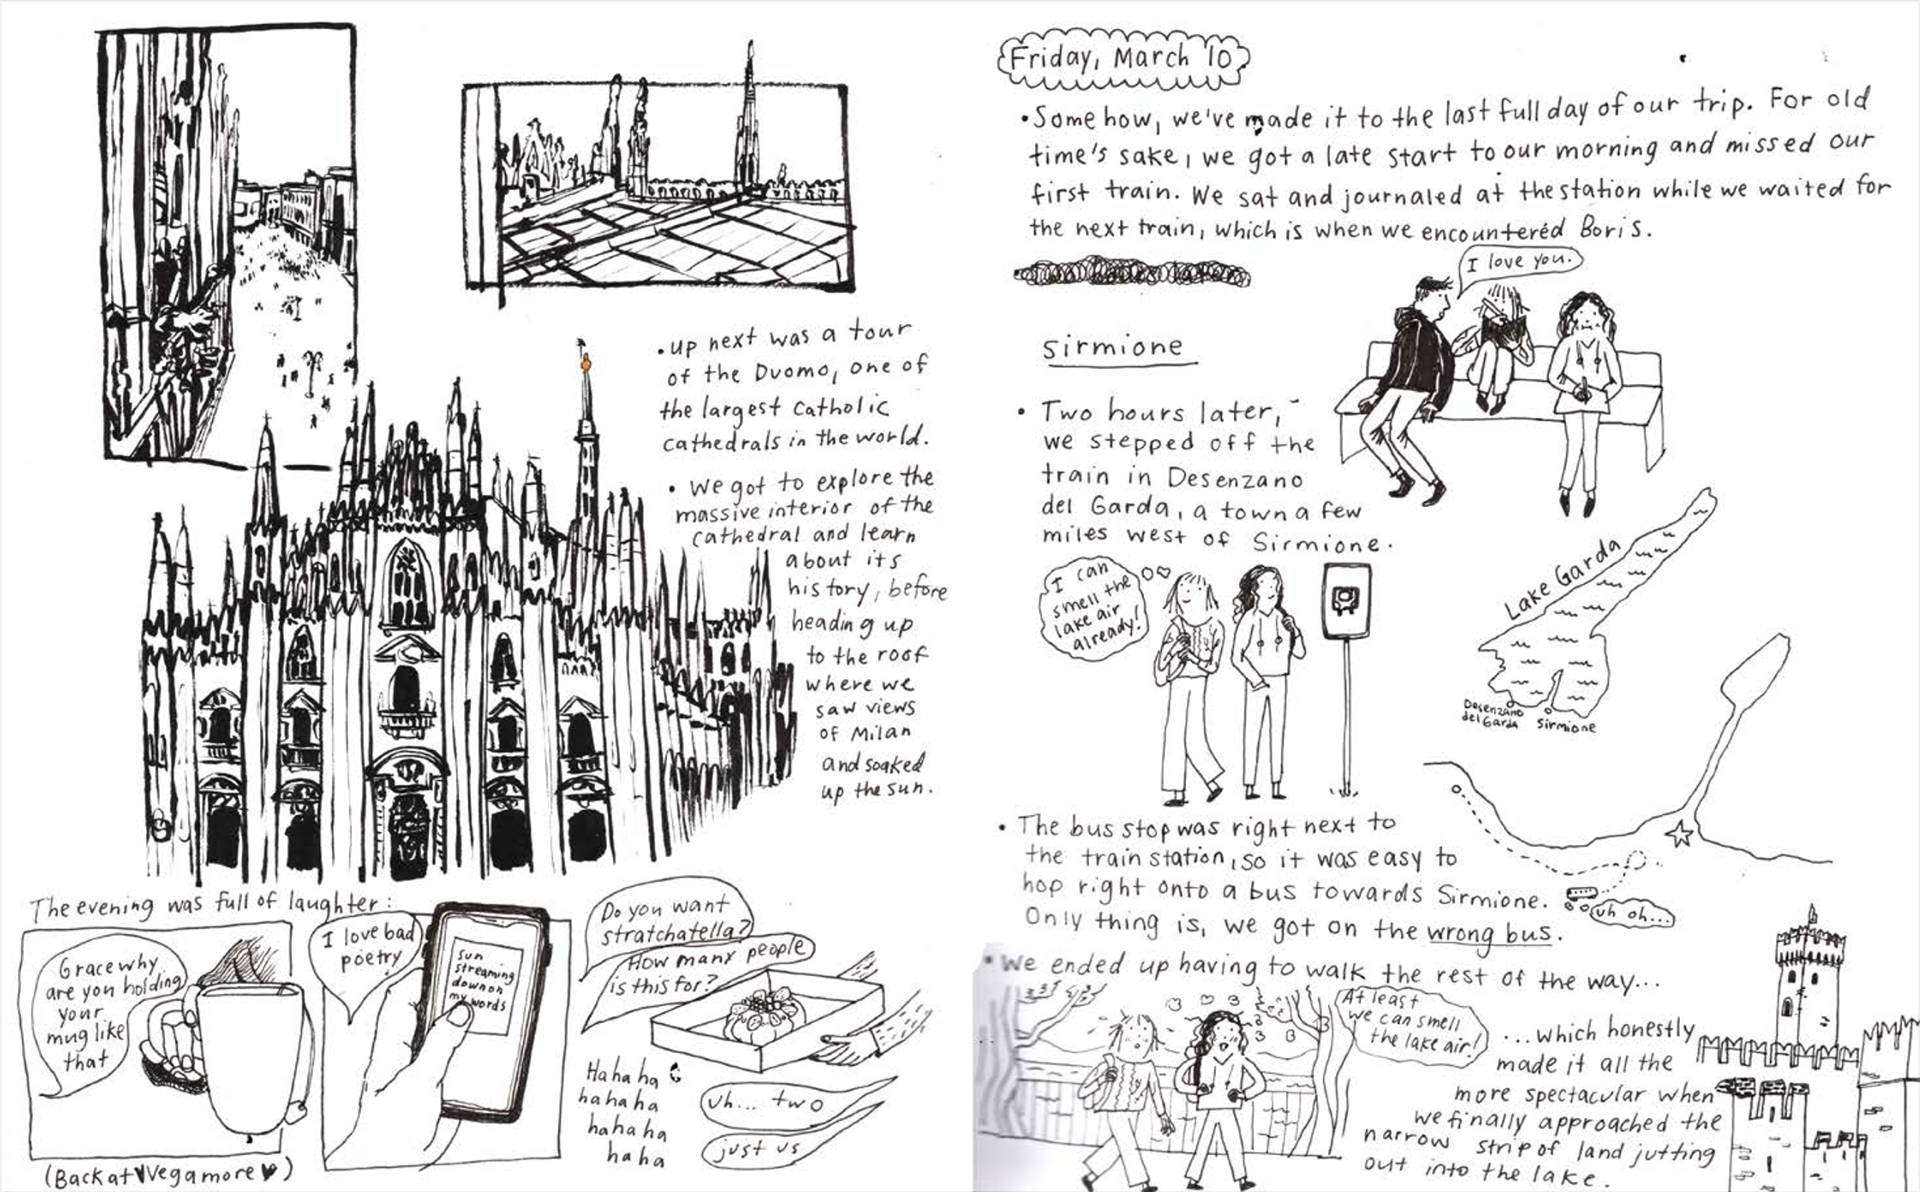 • up next was a tour
of the Duomo, one of
the largest Catholic
cathedrals in the world.
• we got to explore the
massive interior of the
cathedral and learn
about its
history, before
heading up
to the roof
where we
saw views
of Milan
and soaked
up the sun.
The evening was full of laughter:
Grace why
are you holding
your
mug like
that
I love bad
poetry
Sun
streaming
down on
my words
Do you want
stratchatella?
How many people
is this for?
Ha ha ha
ha ha ha
ha ha ha
ha ha
uh... two
just us
(Back at Vegamore ♥)
Friday, March 10
• Somehow, we've made it to the last full day of our trip. For old
time's sake, we got a late start to our morning and missed our
first train. We sat and journaled at the station while we waited for
the next train, which is when we encountered Boris.
I love you.
Sirmione
• Two hours later,
we stepped off the
train in Desenzano
del Garda, a town a few
miles west of Sirmione.
I can
smell the
lake air
already!
Lake Garda
Desenzano
del Garda
Sirmione
• The bus stop was right next to
the train station, so it was easy to
hop right onto a bus towards Sirmione.
Only thing is, we got on the wrong bus.
uh oh...
• We ended up having to walk the rest of the way...
At least
we can smell
the lake air!
...which honestly
made it all the
more spectacular when
we finally approached the
narrow strip of land jutting
out into the lake.